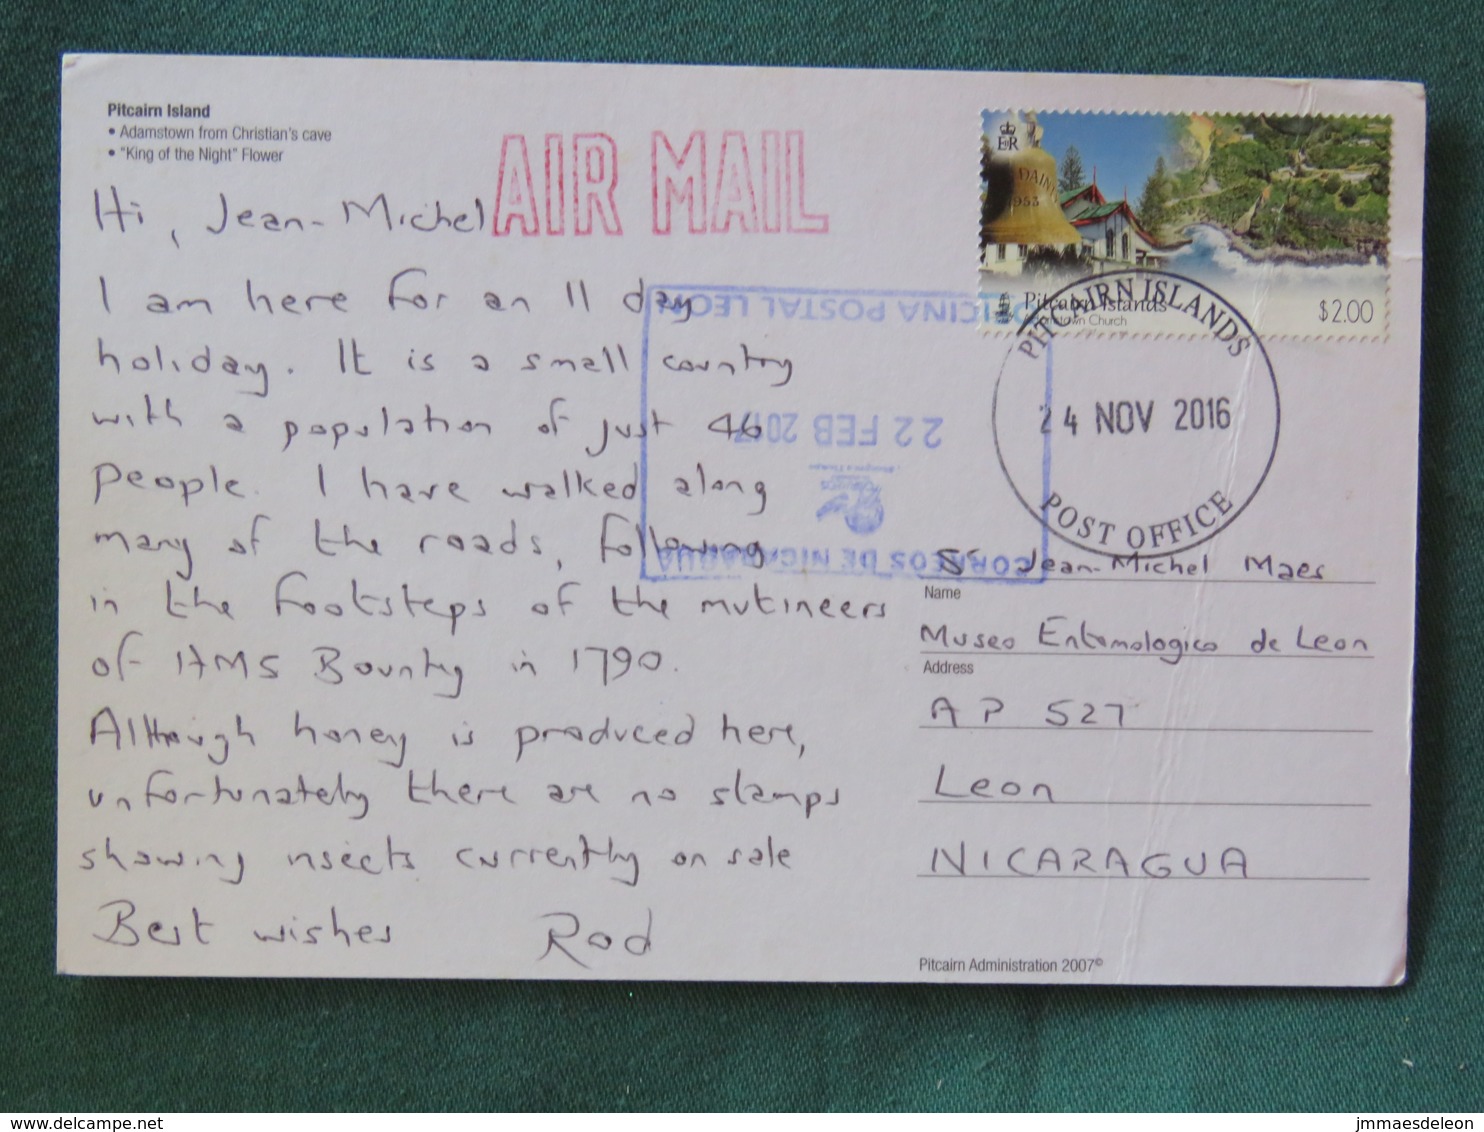 Pitcairn Island
• Adamstown from Christian's cave
• "King of the Night" Flower
AIR MAIL
Hi, Jean-Michel
I am here for an 11 day
holiday. It is a small country
with a population of just 46
people. I have walked along
many of the roads, following
in the footsteps of the mutineers
of HMS Bounty in 1790.
Although honey is produced here,
unfortunately there are no stamps
showing insects currently on sale
Best wishes Rod
E R
1953
Pitcairn Islands
Adamstown Church
$2.00
PITCAIRN ISLANDS
24 NOV 2016
POST OFFICE
OFICINA POSTAL LEON
22 FEB 2017
CORREOS DE NICARAGUA
Sr Jean-Michel Maes
Name
Museo Entomologico de Leon
Address
AP 527
Leon
NICARAGUA
Pitcairn Administration 2007©
delcampe.net
jmmaesdeleon